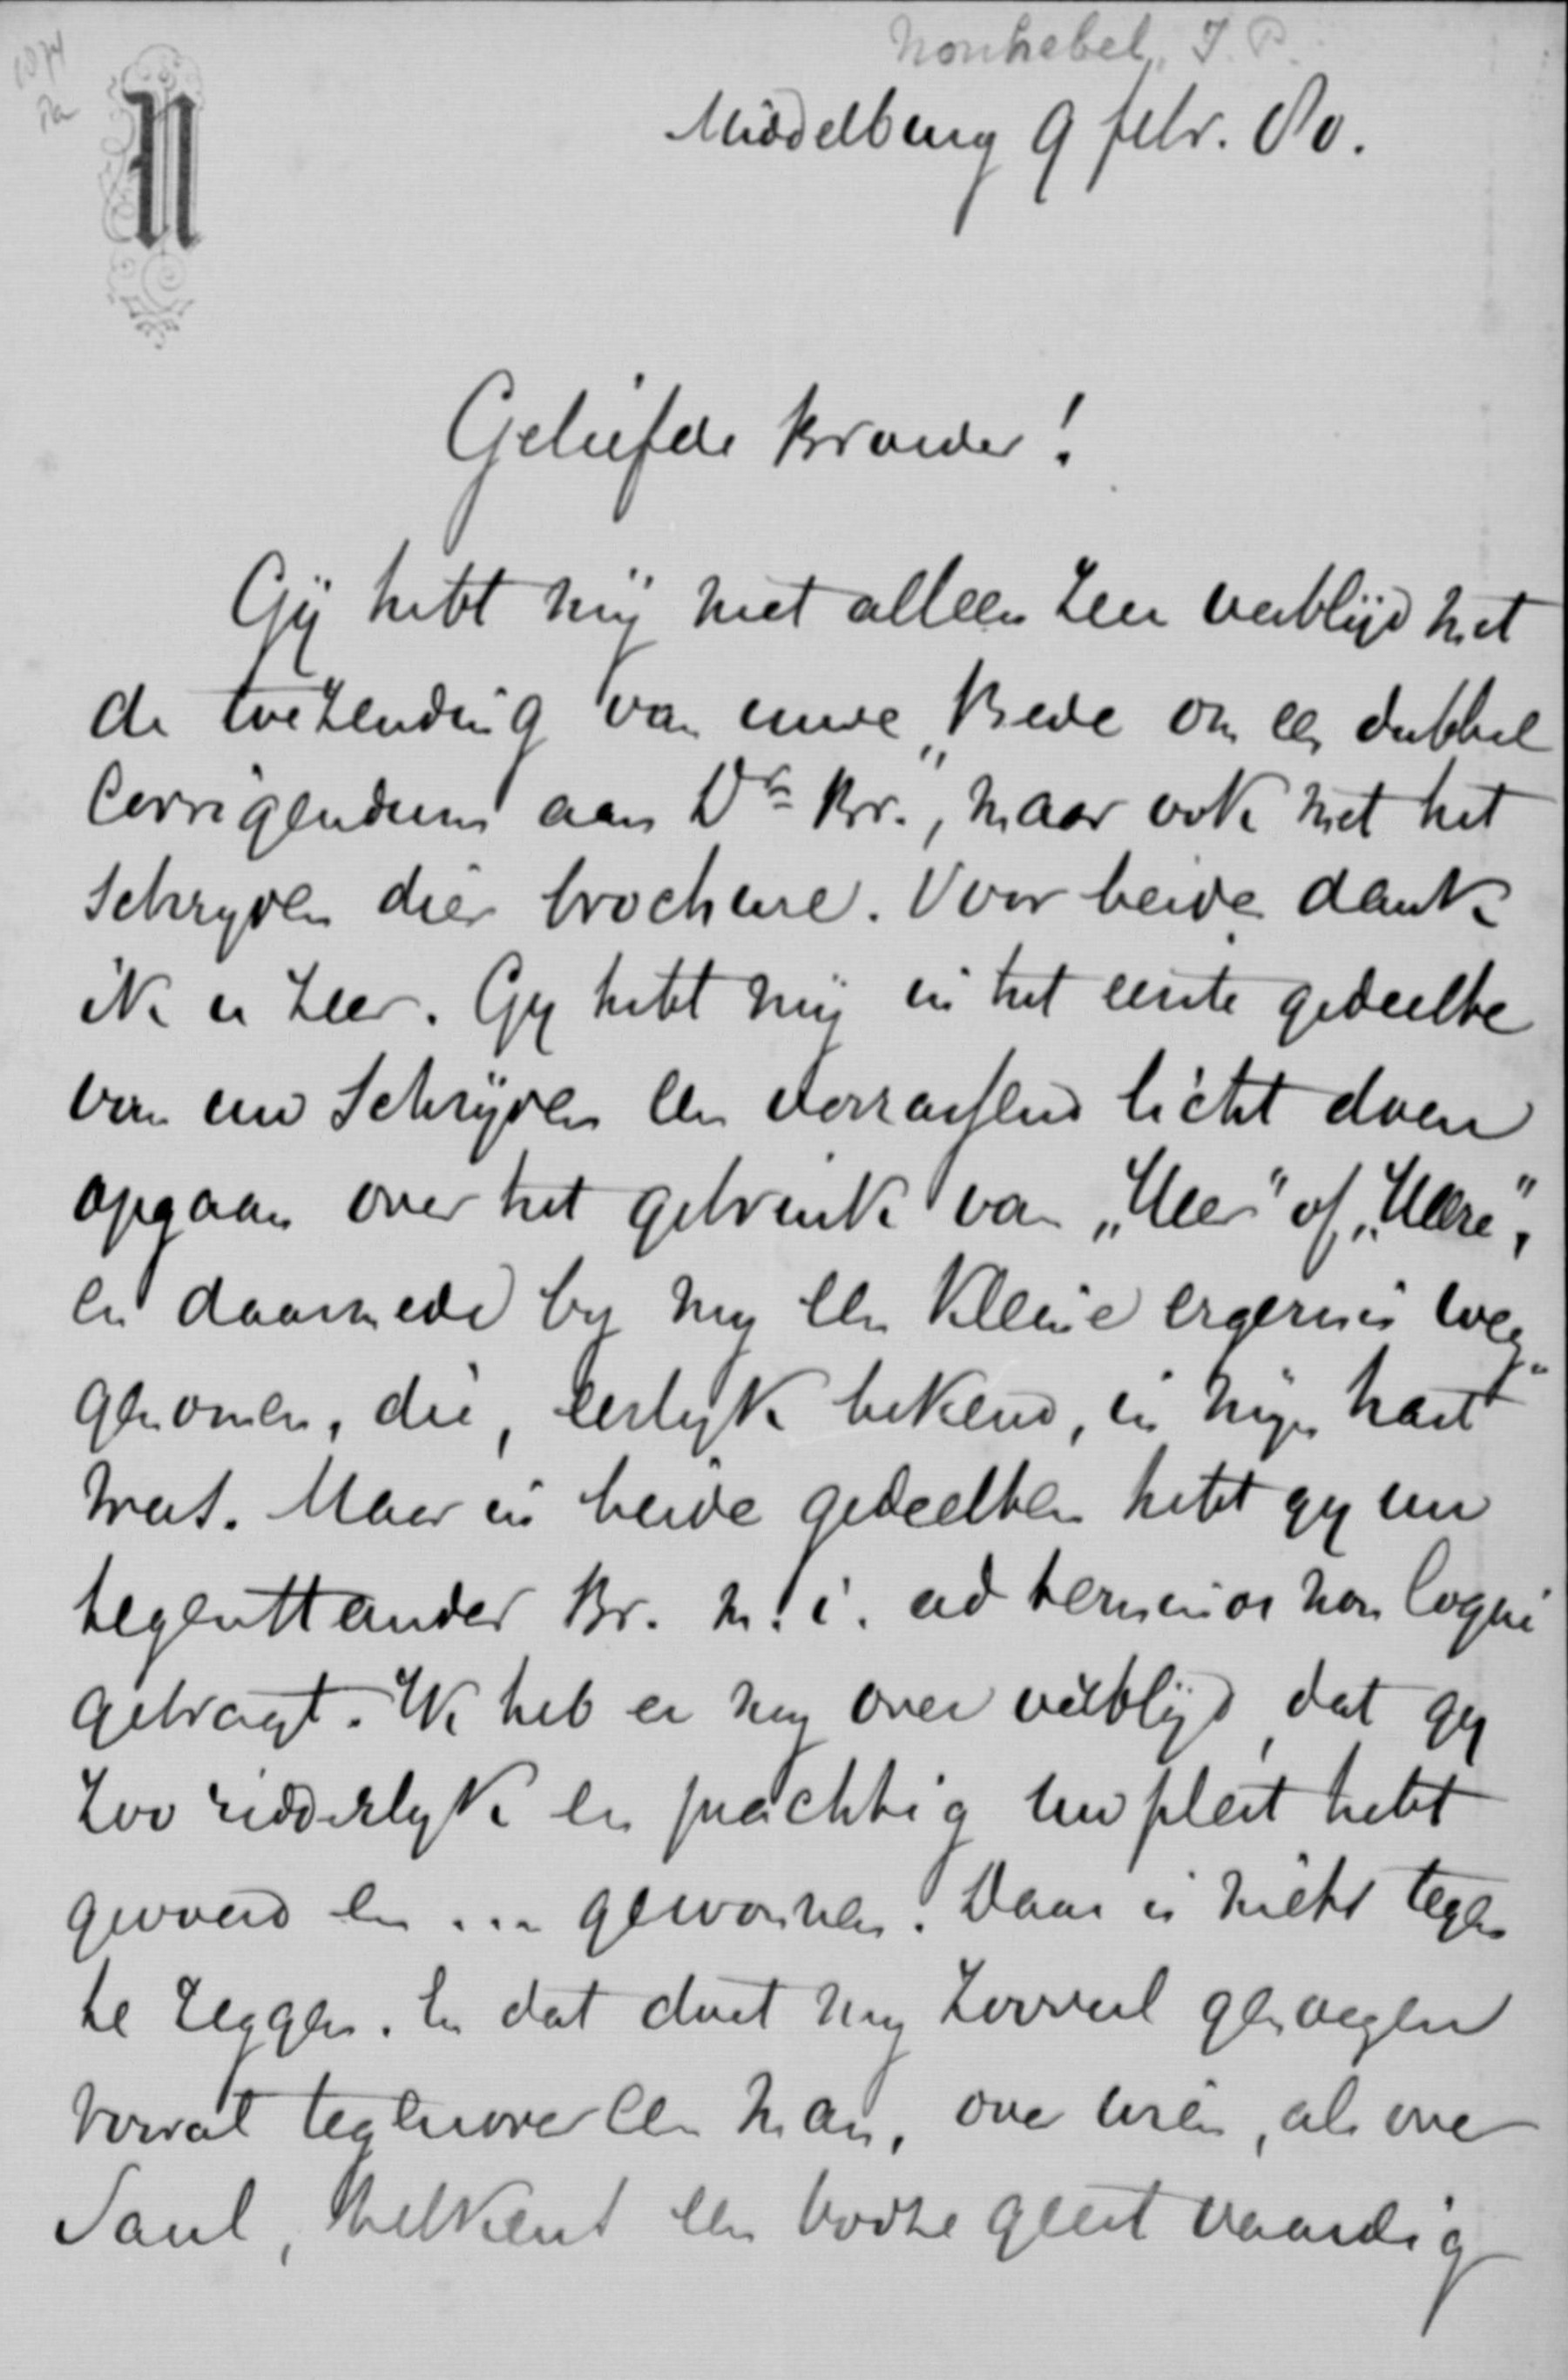 Nonhebel, J. P.
1074
Pa
N
Middelburg 9 febr. 80.
Geliefde Broeder!
Gÿ hebt mÿ niet alleen zeer verblÿd met
de toezending van uwe „Bede om een dubbel
Corrigendum aan Dr. Br.", maar ook met het
schryven dier brochure. Voor beide dank
ik u zeer. Gy hebt mÿ in het eerste gedeelte
van uw schrÿven een verrassend licht doen
opgaan over het gebruik van „Heer" of „Heere",
en daarmede by my een kleine ergernis weg-
genomen, die, eerlyk bekend, in mÿn hart
was. Maar in beide gedeelten hebt gy uw
tegenstander Br. m. i. ad terminos non loqui
gebragt. Ik heb er my over verblÿd, dat gy
zoo ridderlyk en prachtig uw pleit hebt
gevoerd en ... gewonnen. Daar is niets tegen
te zeggen. En dat doet my zooveel genoegen
vooral tegenover een man, over wien, als over
Saul, telkens een booze geest vaardig